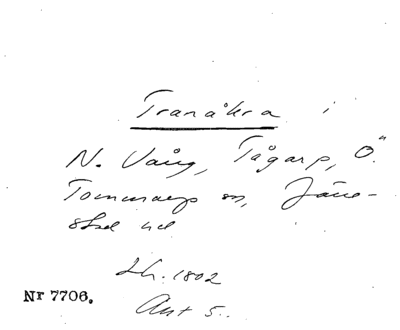 Tranåkra i
N. Vång, Tågarp, Ö.
Tommarp sn, Järre-
stad hd
Lh. 1802
Akt 5.
Nr 7706.